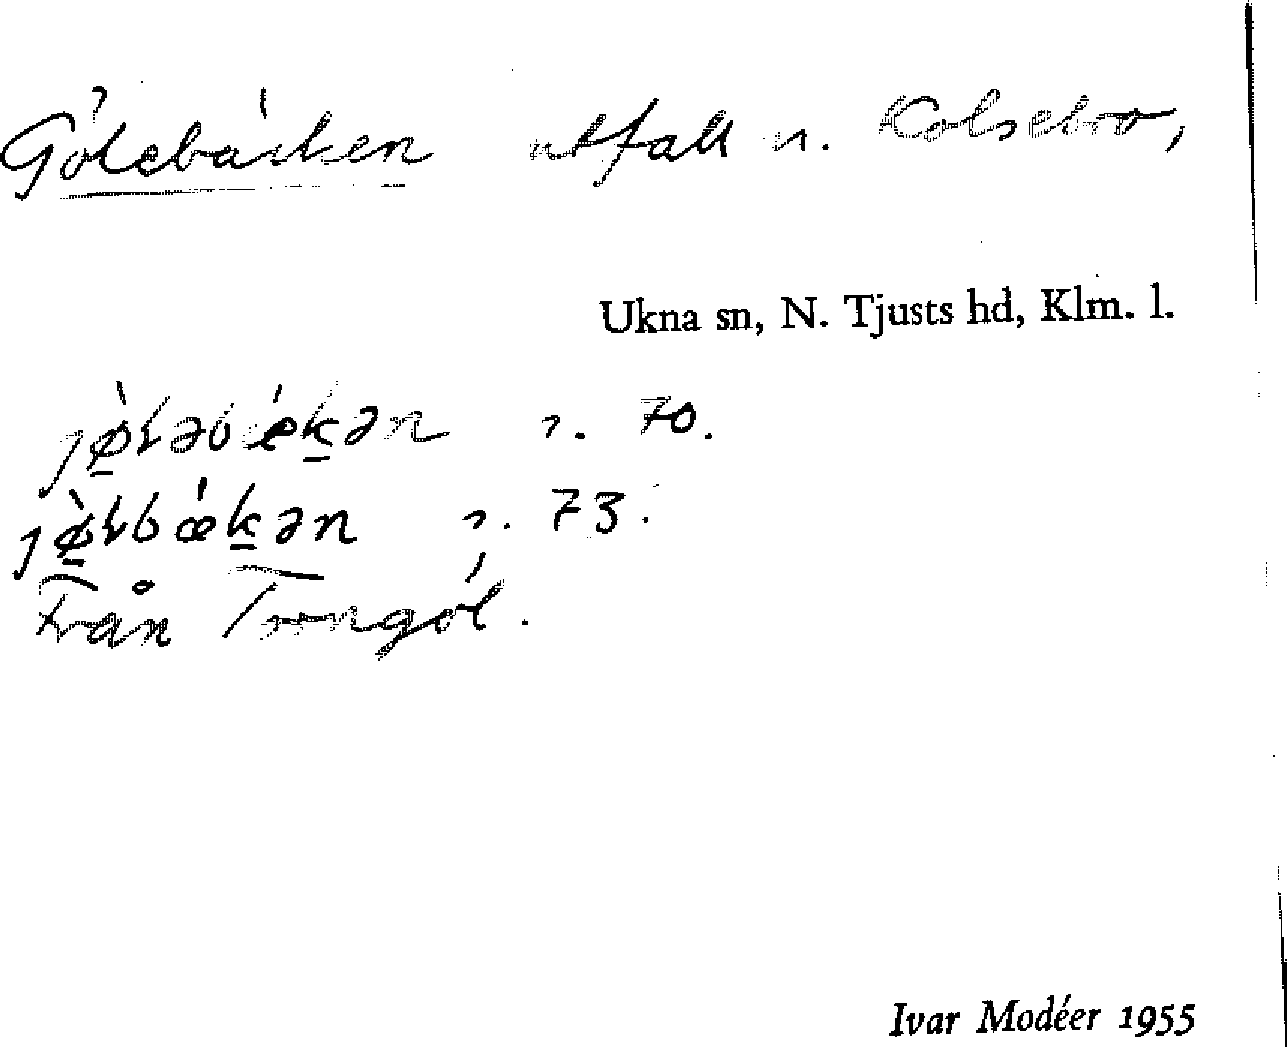 Gölebäcken utfall n. Kolsebro,
Ukna sn, N. Tjusts hd, Klm. l.
jø̀ɫəbǽk̲ən n. 70.
jø̀ɫbǽk̲ən n. 73.
Från Trongöl.
Ivar Modéer 1955